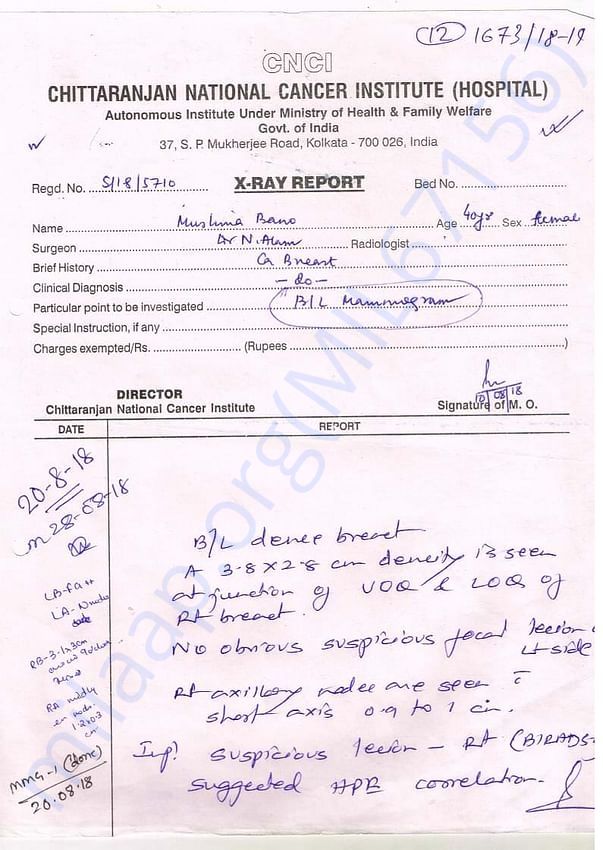 (12) 1673/18-19
CNCI
CHITTARANJAN NATIONAL CANCER INSTITUTE (HOSPITAL)
Autonomous Institute Under Ministry of Health & Family Welfare
Govt. of India
37, S. P. Mukherjee Road, Kolkata - 700 026, India
Regd. No. S/18/5710 X-RAY REPORT Bed No.
Name Mushina Bano Age 40yr Sex female
Surgeon Dr N. Alam Radiologist
Brief History Ca Breast
Clinical Diagnosis - do -
Particular point to be investigated B/L Mammogram
Special Instruction, if any
Charges exempted/Rs. (Rupees )
10/08/18
DIRECTOR
Chittaranjan National Cancer Institute Signature of M. O.
DATE REPORT
20-8-18
28-08-18
B/L dense breast
A 3.8 x 2.8 cm density is seen
at junction of UOQ & LOQ of
Rt breast.
No obvious suspicious focal lesion
Lt side
Rt axillary nodes are seen c̄
short axis 0.9 to 1 cm.
Imp: suspicious lesion - Rt (BIRADS-
suggested HPE correlation.
LB-
LA-
RB-3.
RA mildly
1.2x0.3
cm
MMG-1 (done)
20.08.18
milaap.org(MIL67156)